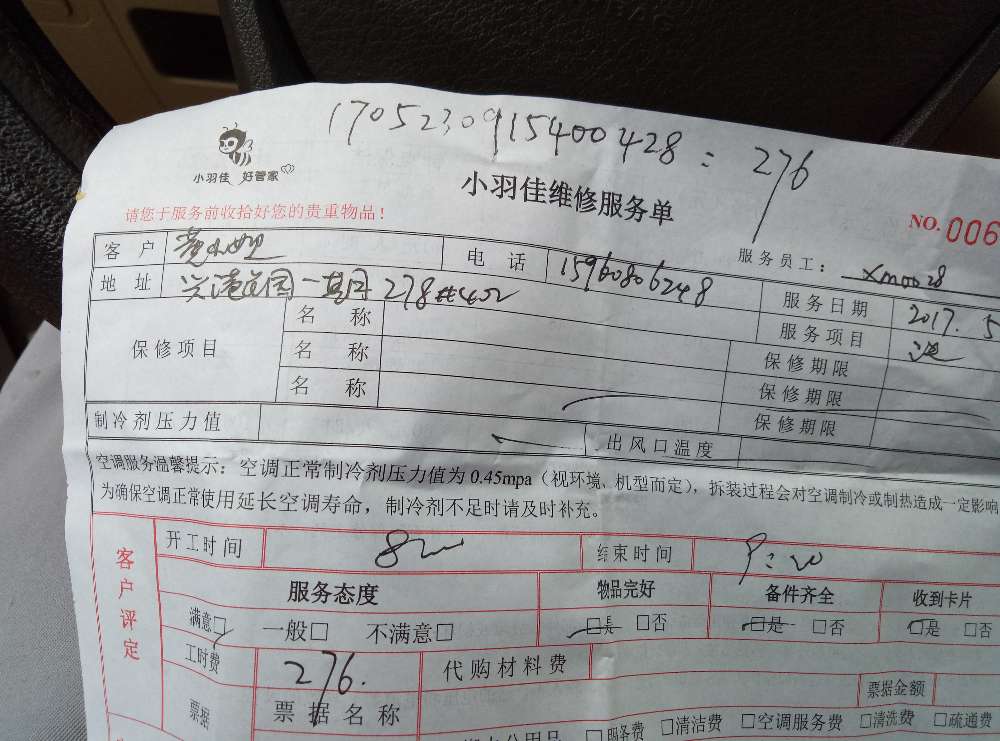 170523091540​0428：276
小羽佳 好管家
小羽佳维修服务单
请您于服务前收拾好您的贵重物品！
NO. 006
服务员工： xm0028
客户 黄小姐 电话 15960806248 服务日期 2017.5
地址 兴港花园一期 278#402 服务项目
保修项目 名称 保修期限
名称 保修期限
名称 保修期限
制冷剂压力值 出风口温度
空调服务温馨提示：空调正常制冷剂压力值为 0.45mpa（视环境、机型而定），拆装过程会对空调制冷或制热造成一定影响
为确保空调正常使用延长空调寿命，制冷剂不足时请及时补充。
客户评定
开工时间 结束时间
服务态度 物品完好 备件齐全 收到卡片
满意□ 一般□ 不满意□ □是 □否 □是 □否 □是 □否
工时费 276. 代购材料费
票据 票据名称 票据金额
□服务费 □清洁费 □空调服务费 □清洗费 □疏通费